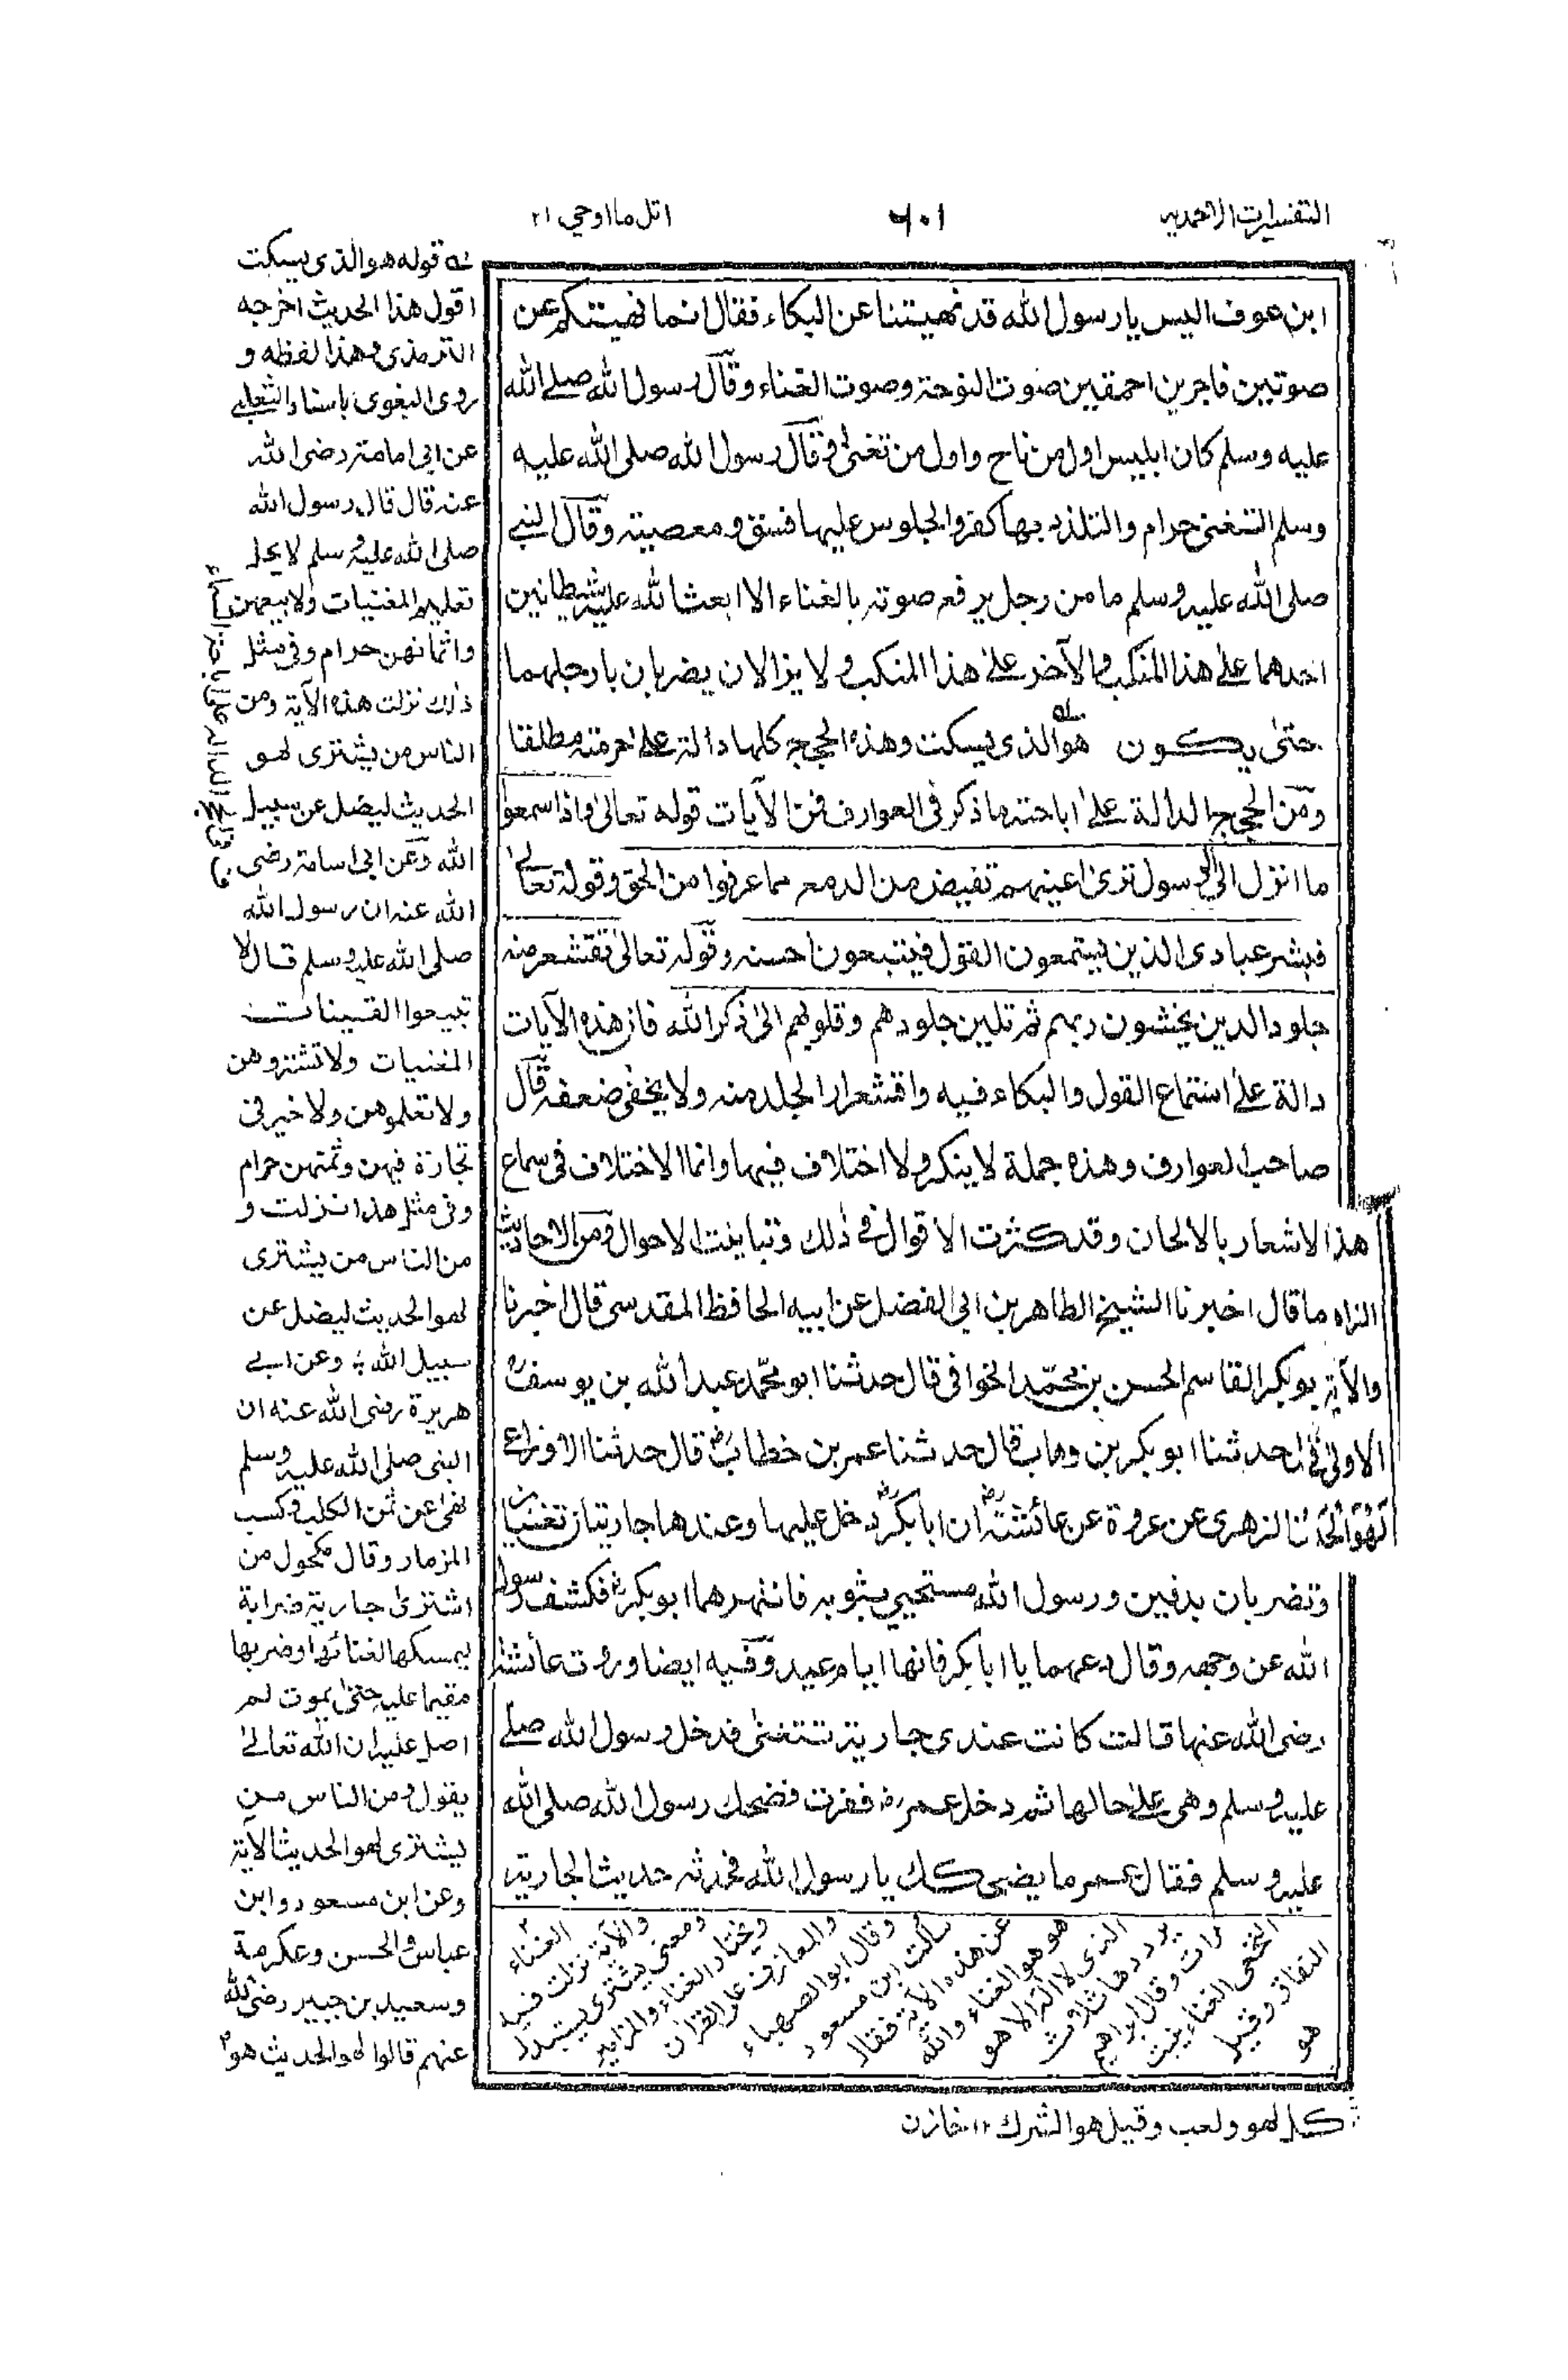 التفسيرات الاحمديه
٦٠١
اتل ما اوحي ٢١
ابن عوف اليس يا رسول الله قد نهيتنا عن البكاء فقال انما نهيتكم عن
صوتين فاجرين احمقين صوت النوحة وصوت الغناء وقال رسول الله صلى الله
عليه وسلم كان ابليس اول من ناح و اول من تغنى و قال رسول الله صلى الله عليه
وسلم التغنى حرام والتلذذ بها كفر والجلوس عليها فسق و معصية وقال النبي
صلى الله عليه وسلم ما من رجل يرفع صوته بالغناء الا ابعث الله عليه شيطانين
احدهما على هذا المنكب والآخر على هذا المنكب و لا يزالان يضربان بارجلهما
حتى يكون هو الذى يسكت وهذه الحجج كلها دالة على حرمته مطلقا
ومن الحجج الدالة على اباحته ما ذكر فى العوارف فمن الآيات قوله تعالى واذا سمعوا
ما انزل الى الرسول ترى اعينهم تفيض من الدمع مما عرفوا من الحق وقوله تعالى
فبشر عبادى الذين يستمعون القول فيتبعون احسنه وقوله تعالى تقشعر منه
جلود الذين يخشون ربهم ثم تلين جلودهم وقلوبهم الى ذكر الله فان هذه الآيات
دالة على استماع القول والبكاء فيه واقشعرار الجلد منه ولا يخفى ضعفه قال
صاحب العوارف وهذه جملة لا ينكر ولا اختلاف فيها وانما الاختلاف فى سماع
هذا الاشعار بالالحان وقد كثرت الاقوال فى ذلك وتباينت الاحوال ومن الاحاديث
ما قال اخبرنا الشيخ الطاهر بن ابى الفضل عن ابيه الحافظ المقدسى قال اخبرنا
بو بكر القاسم الحسن بن محمد الخوافى قال حدثنا ابو محمد عبد الله بن يوسف
حدثنا ابو بكر بن وهاب قال حدثنا عمر بن خطاب قال حدثنا الاوزاعى
الزهرى عن عروة عن عائشة ان ابا بكر دخل عليها وعندها جاريتان تغنيان
وتضربان بدفين ورسول الله مستحيي بثوبه فانتهرهما ابو بكر فكشف رسول
الله عن وجهه وقال دعهما يا ابا بكر فانها ايام عيد وفيه ايضا وروت عائشة
رضى الله عنها قالت كانت عندى جارية تتغنى فدخل رسول الله صلى
عليه وسلم وهى على حالها ثم دخل عمر ففرت فضحك رسول الله صلى الله
عليه وسلم فقال عمر ما يضحكك يا رسول الله فحدثه حديث الجارية
قوله هو الذى يسكت
اقول هذا الحديث اخرجه
الترمذى وهذا لفظه و
روى البغوى باسناد الثعلبى
عن ابى امامة رضى الله
عنه قال قال رسول الله
صلى الله عليه وسلم لا يحل
تعليم المغنيات ولا بيعهن
واثمانهن حرام وفى مثل
ذلك نزلت هذه الآية ومن
الناس من يشترى لهو
الحديث ليضل عن سبيل
الله وعن ابى اسامة رضى
الله عنه ان رسول الله
صلى الله عليه وسلم قال لا
تبيعوا القينات
المغنيات ولا تشتروهن
ولا تعلموهن ولا خير فى
تجارة فيهن وثمنهن حرام
وفى مثل هذا نزلت و
من الناس من يشترى
لهو الحديث ليضل عن
سبيل الله وعن ابى
هريرة رضى الله عنه ان
النبى صلى الله عليه وسلم
نهى عن ثمن الكلب وكسب
المزمار وقال مكحول من
اشترى جارية ضرابة
ليمسكها لغنائها وضربها
مقيما عليه حتى يموت لم
اصل عليه ان الله تعالى
يقول ومن الناس من
يشترى لهو الحديث الآية
وعن ابن مسعود وابن
عباس والحسن وعكرمة
وسعيد بن جبير رضى الله
عنهم قالوا لهو الحديث هو
الغناء
والآية نزلت فيه
ومعنى يشترى يستبدل
ويختار الغناء والمزامير
والمعازف على القرآن
وقال ابو الصهباء
سألت ابن مسعود
عن هذه الآية فقال
هو هو الغناء والله
الذى لا اله الا هو
يرددها ثلاث
مرات وقال ابراهيم
النخعى الغناء ينبت
النفاق وقيل
هو
كل لهو ولعب وقيل هو الشرك ١٢ خازن